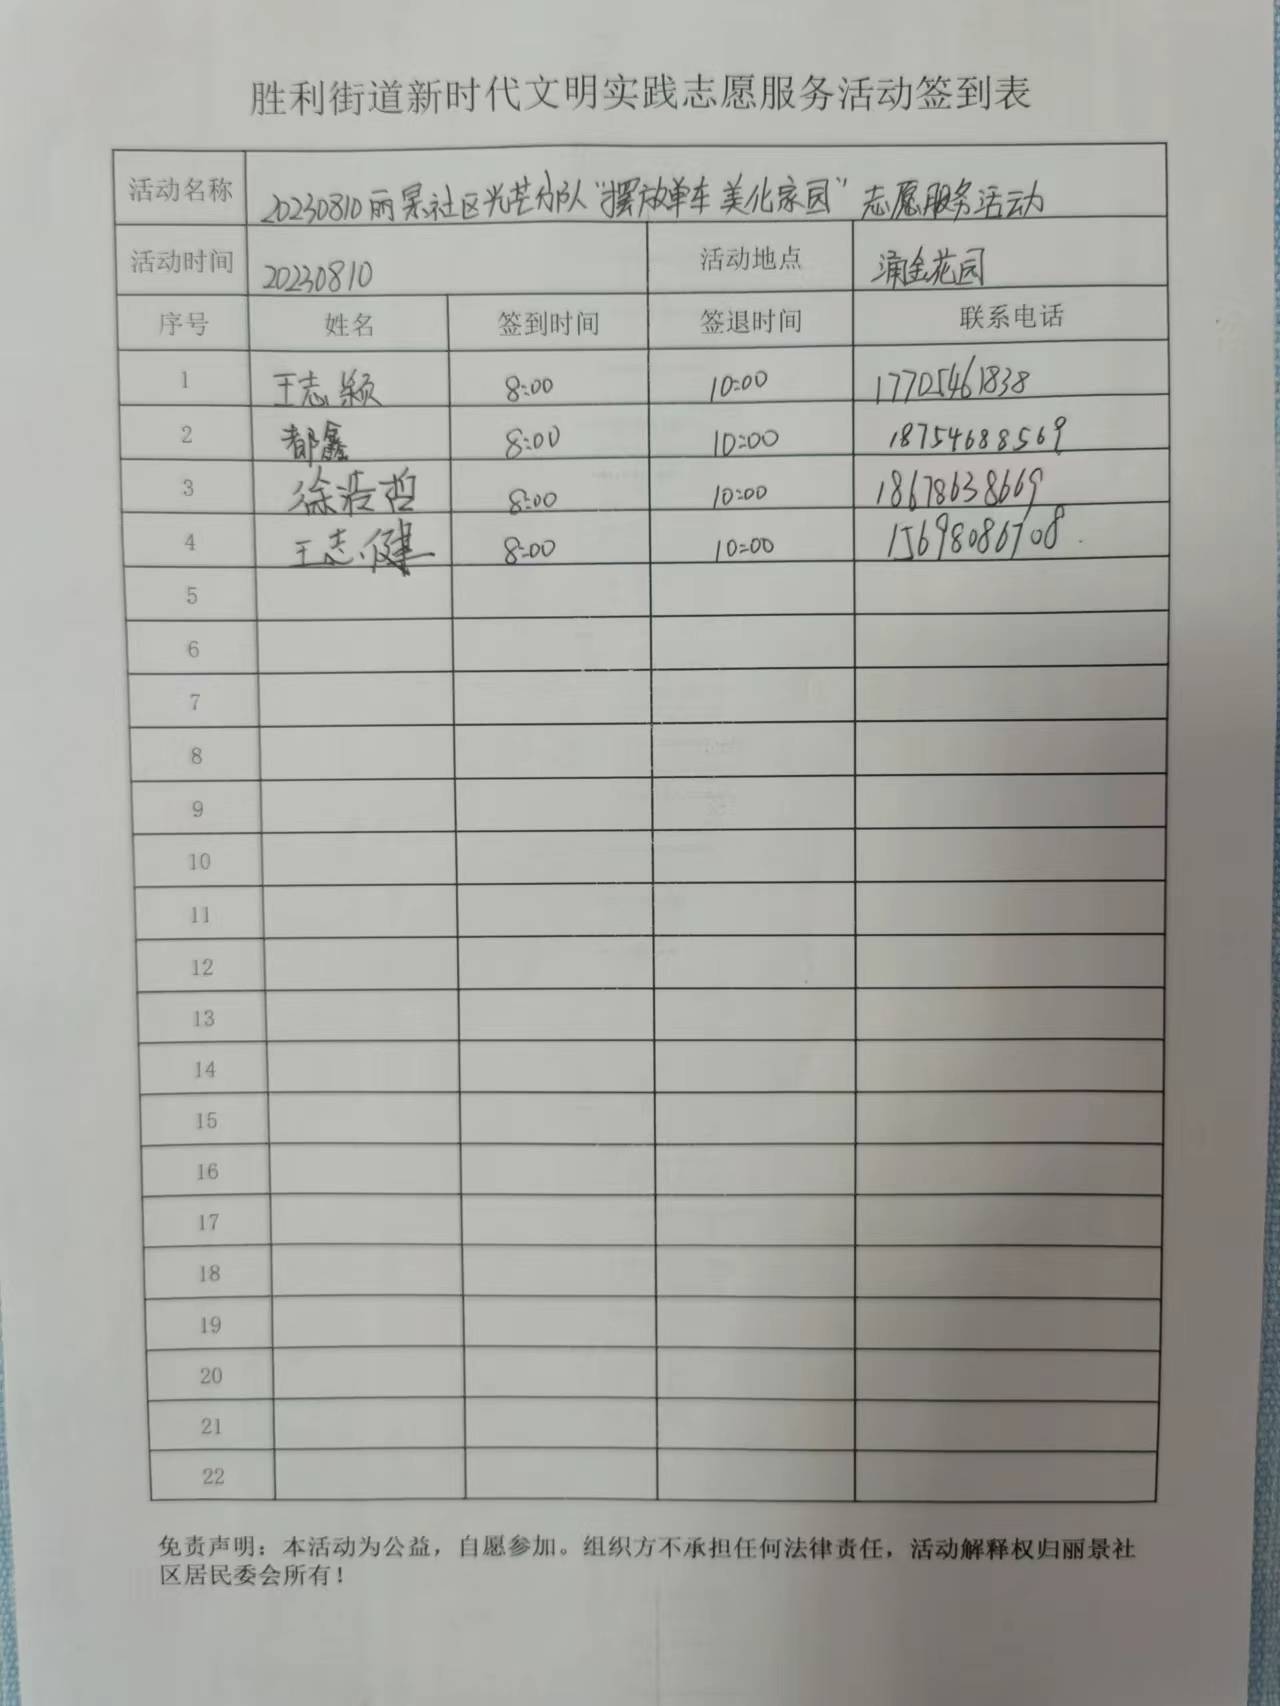 胜利街道新时代文明实践志愿服务活动签到表
活动名称 20230810丽景社区光芒分队“摆放单车 美化家园”志愿服务活动
活动时间 20230810 活动地点 涌金花园
序号 姓名 签到时间 签退时间 联系电话
1 王志颖 8:00 10:00 17705461838
2 都鑫 8:00 10:00 18754688569
3 徐浩哲 8:00 10:00 18678638669
4 王志健 8:00 10:00 15698086708
5
6
7
8
9
10
11
12
13
14
15
16
17
18
19
20
21
22
免责声明：本活动为公益，自愿参加。组织方不承担任何法律责任，活动解释权归丽景社
区居民委会所有！